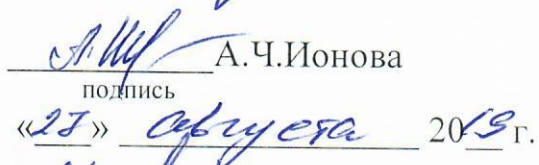 А.Ч.Ионова
подпись
«27» августа 2019 г.